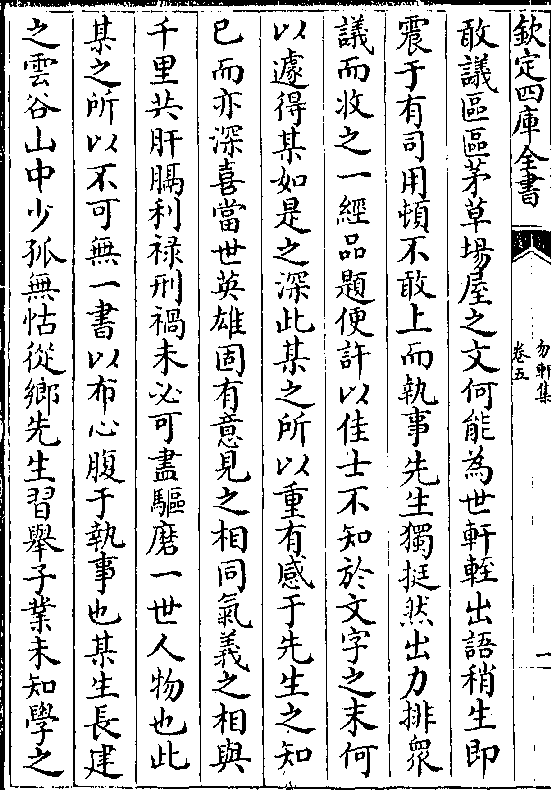 欽定四庫全書
勿軒集
卷五
一
敢議區區茅草場屋之文何能為世軒輊出語稍生即
震于有司用頓不敢上而執事先生獨挺然出力排衆
議而收之一經品題便許以佳士不知於文字之末何
以遽得某如是之深此某之所以重有感于先生之知
已而亦深喜當世英雄固有意見之相同氣義之相與
千里共肝膈利禄刑禍未必可盡驅磨一世人物也此
某之所以不可無一書以布心腹于執事也某生長建
之雲谷山中少孤無怙從鄉先生習舉子業未知學之